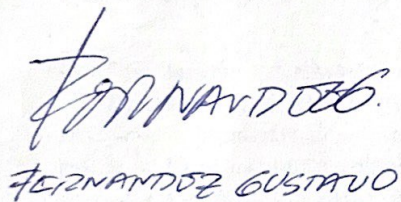 FERNANDEZ G.
FERNANDEZ GUSTAVO